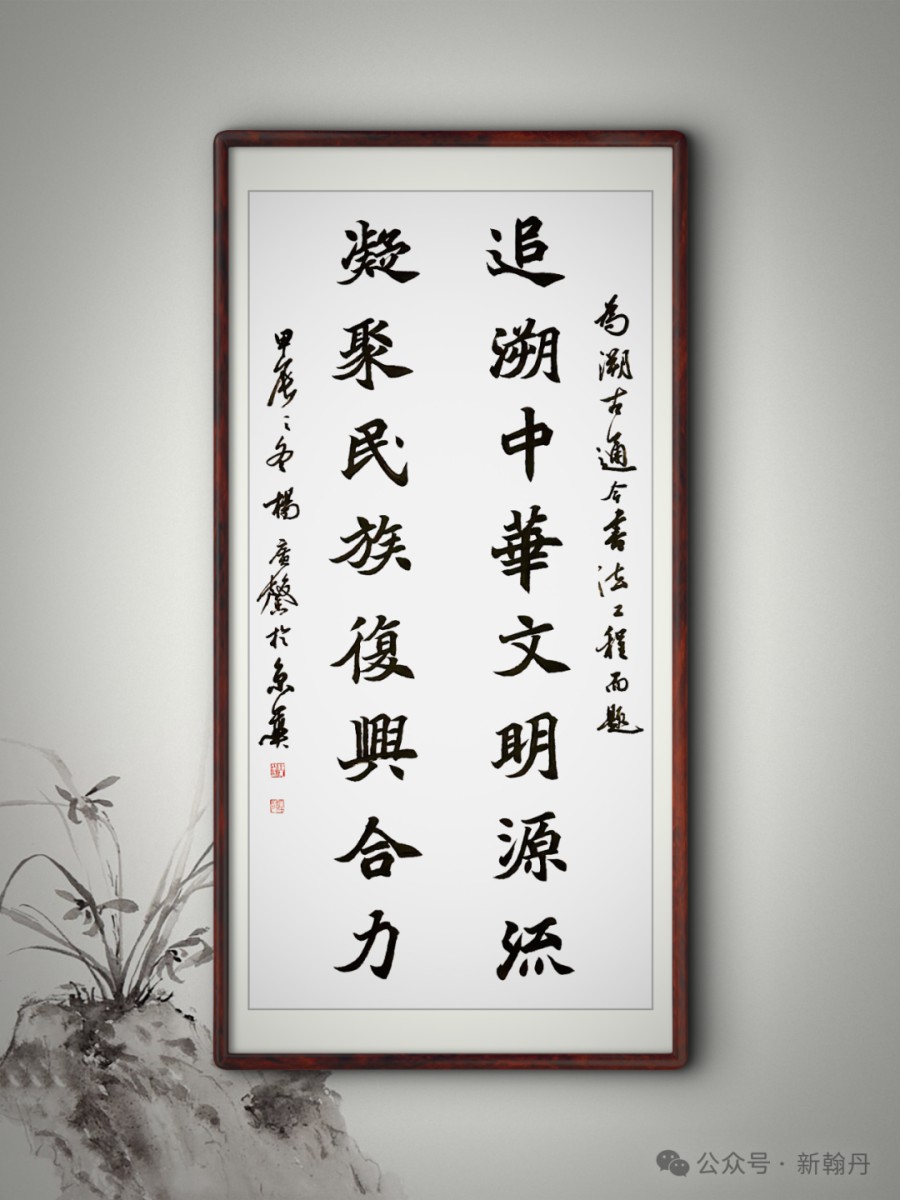 為溯古通今書法工程而题
追溯中華文明源流
凝聚民族復興合力
甲辰之冬楊廣馨於京華
公众号·新翰丹